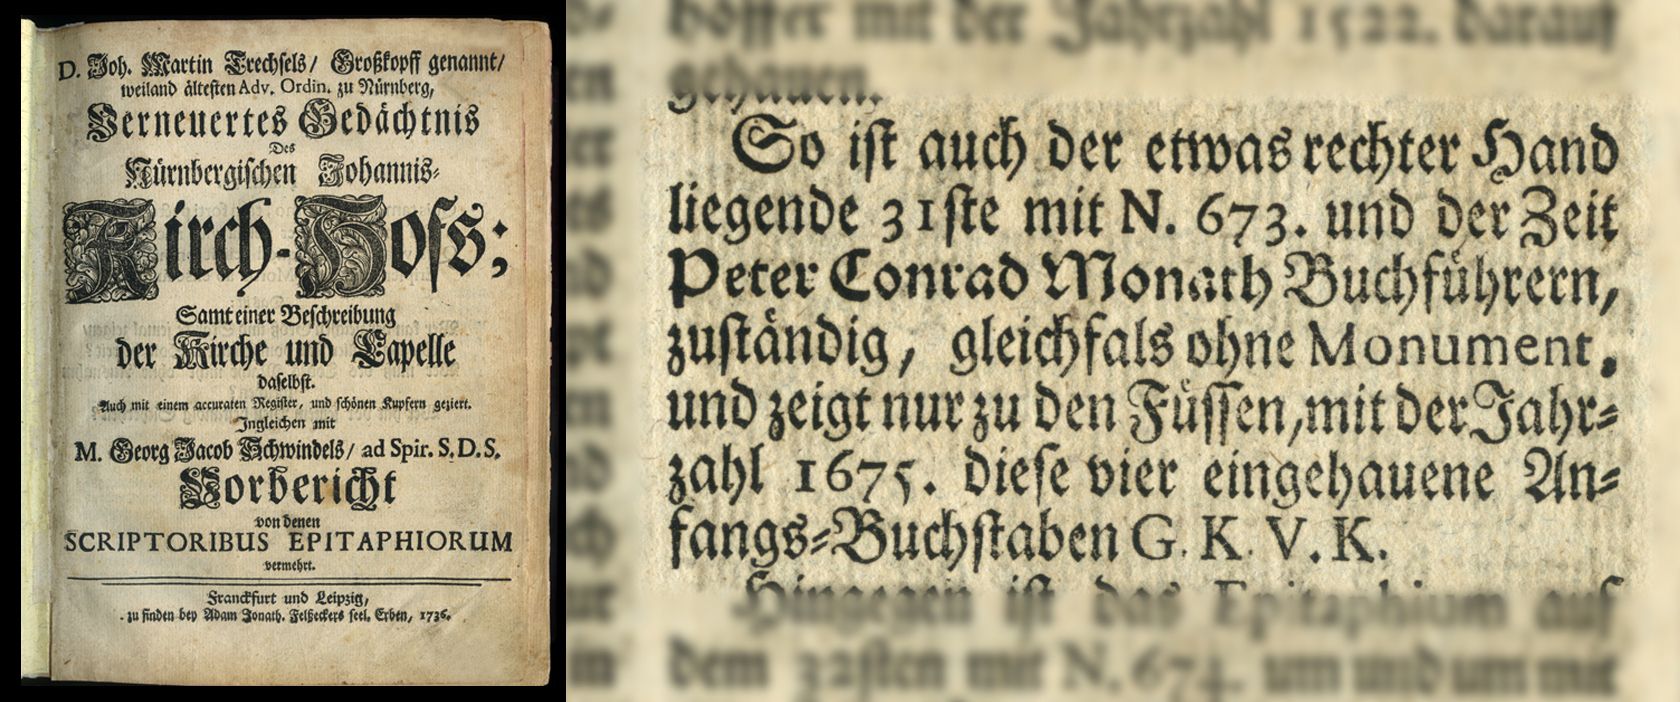 D. Joh. Martin Trechsels/ Großkopff genannt/
weiland ältesten Adv. Ordin. zu Nürnberg,
Verneuertes Gedächtnis
Des
Nürnbergischen Johannis-
Kirch-Hofs;
Samt einer Beschreibung
der Kirche und Capelle
daselbst.
Auch mit einem accuraten Register, und schönen Kupfern geziert.
Ingleichen mit
M. Georg Jacob Schwindels/ ad Spir. S. D. S.
Vorbericht
von denen
SCRIPTORIBUS EPITAPHIORUM
vermehrt.
Franckfurt und Leipzig,
zu finden bey Adam Jonath. Felßeckers seel. Erben, 1736.
höffer mit der Jahrzahl 1522. darauf
gehauen.
So ist auch der etwas rechter Hand
liegende 31ste mit N. 673. und der Zeit
Peter Conrad Monath Buchführern,
zuständig, gleichfals ohne Monument,
und zeigt nur zu den Füssen, mit der Jahr-
zahl 1675. diese vier eingehauene An-
fangs-Buchstaben G. K. V. K.
Hingegen ist das Epitaphium auf
dem 32sten mit N. 674. um und um mit